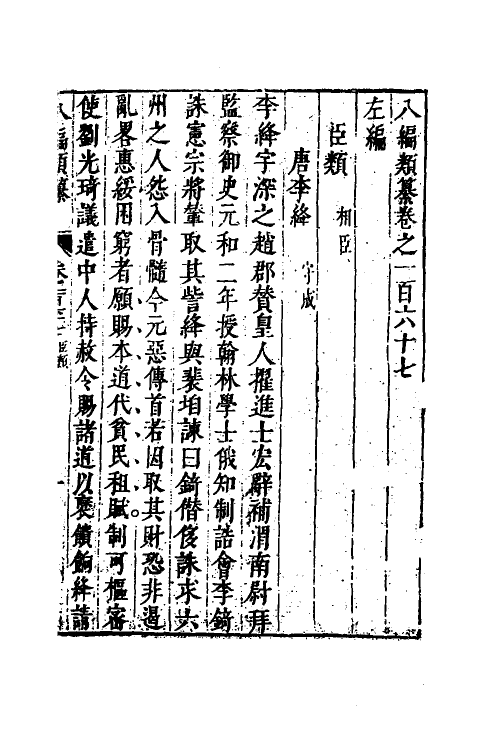 八編類纂卷之一百六十七
左編
臣類 相臣
唐李絳 守成
李絳字深之趙郡贊皇人擢進士宏辭補渭南尉拜
監察御史元和二年授翰林學士俄知制誥會李錡
誅憲宗將輦取其貲絳與裴垍諫曰錡僭侈誅求六
州之人怨入骨髓今元惡傳首若因取其財恐非遏
亂畧惠綏困窮者願賜本道代貧民租賦制可樞密
使劉光琦議遣中人持赦令賜諸道以裒饋餉絳請
八編類纂 一